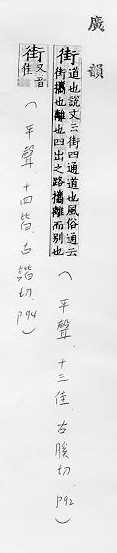 廣韻
街道也說文云街四通道也風俗通云街攜也離也四出之路攜離而别也(平聲、十三佳、古膎切、P92)
街又音佳(平聲、十四皆、古諧切、P94)